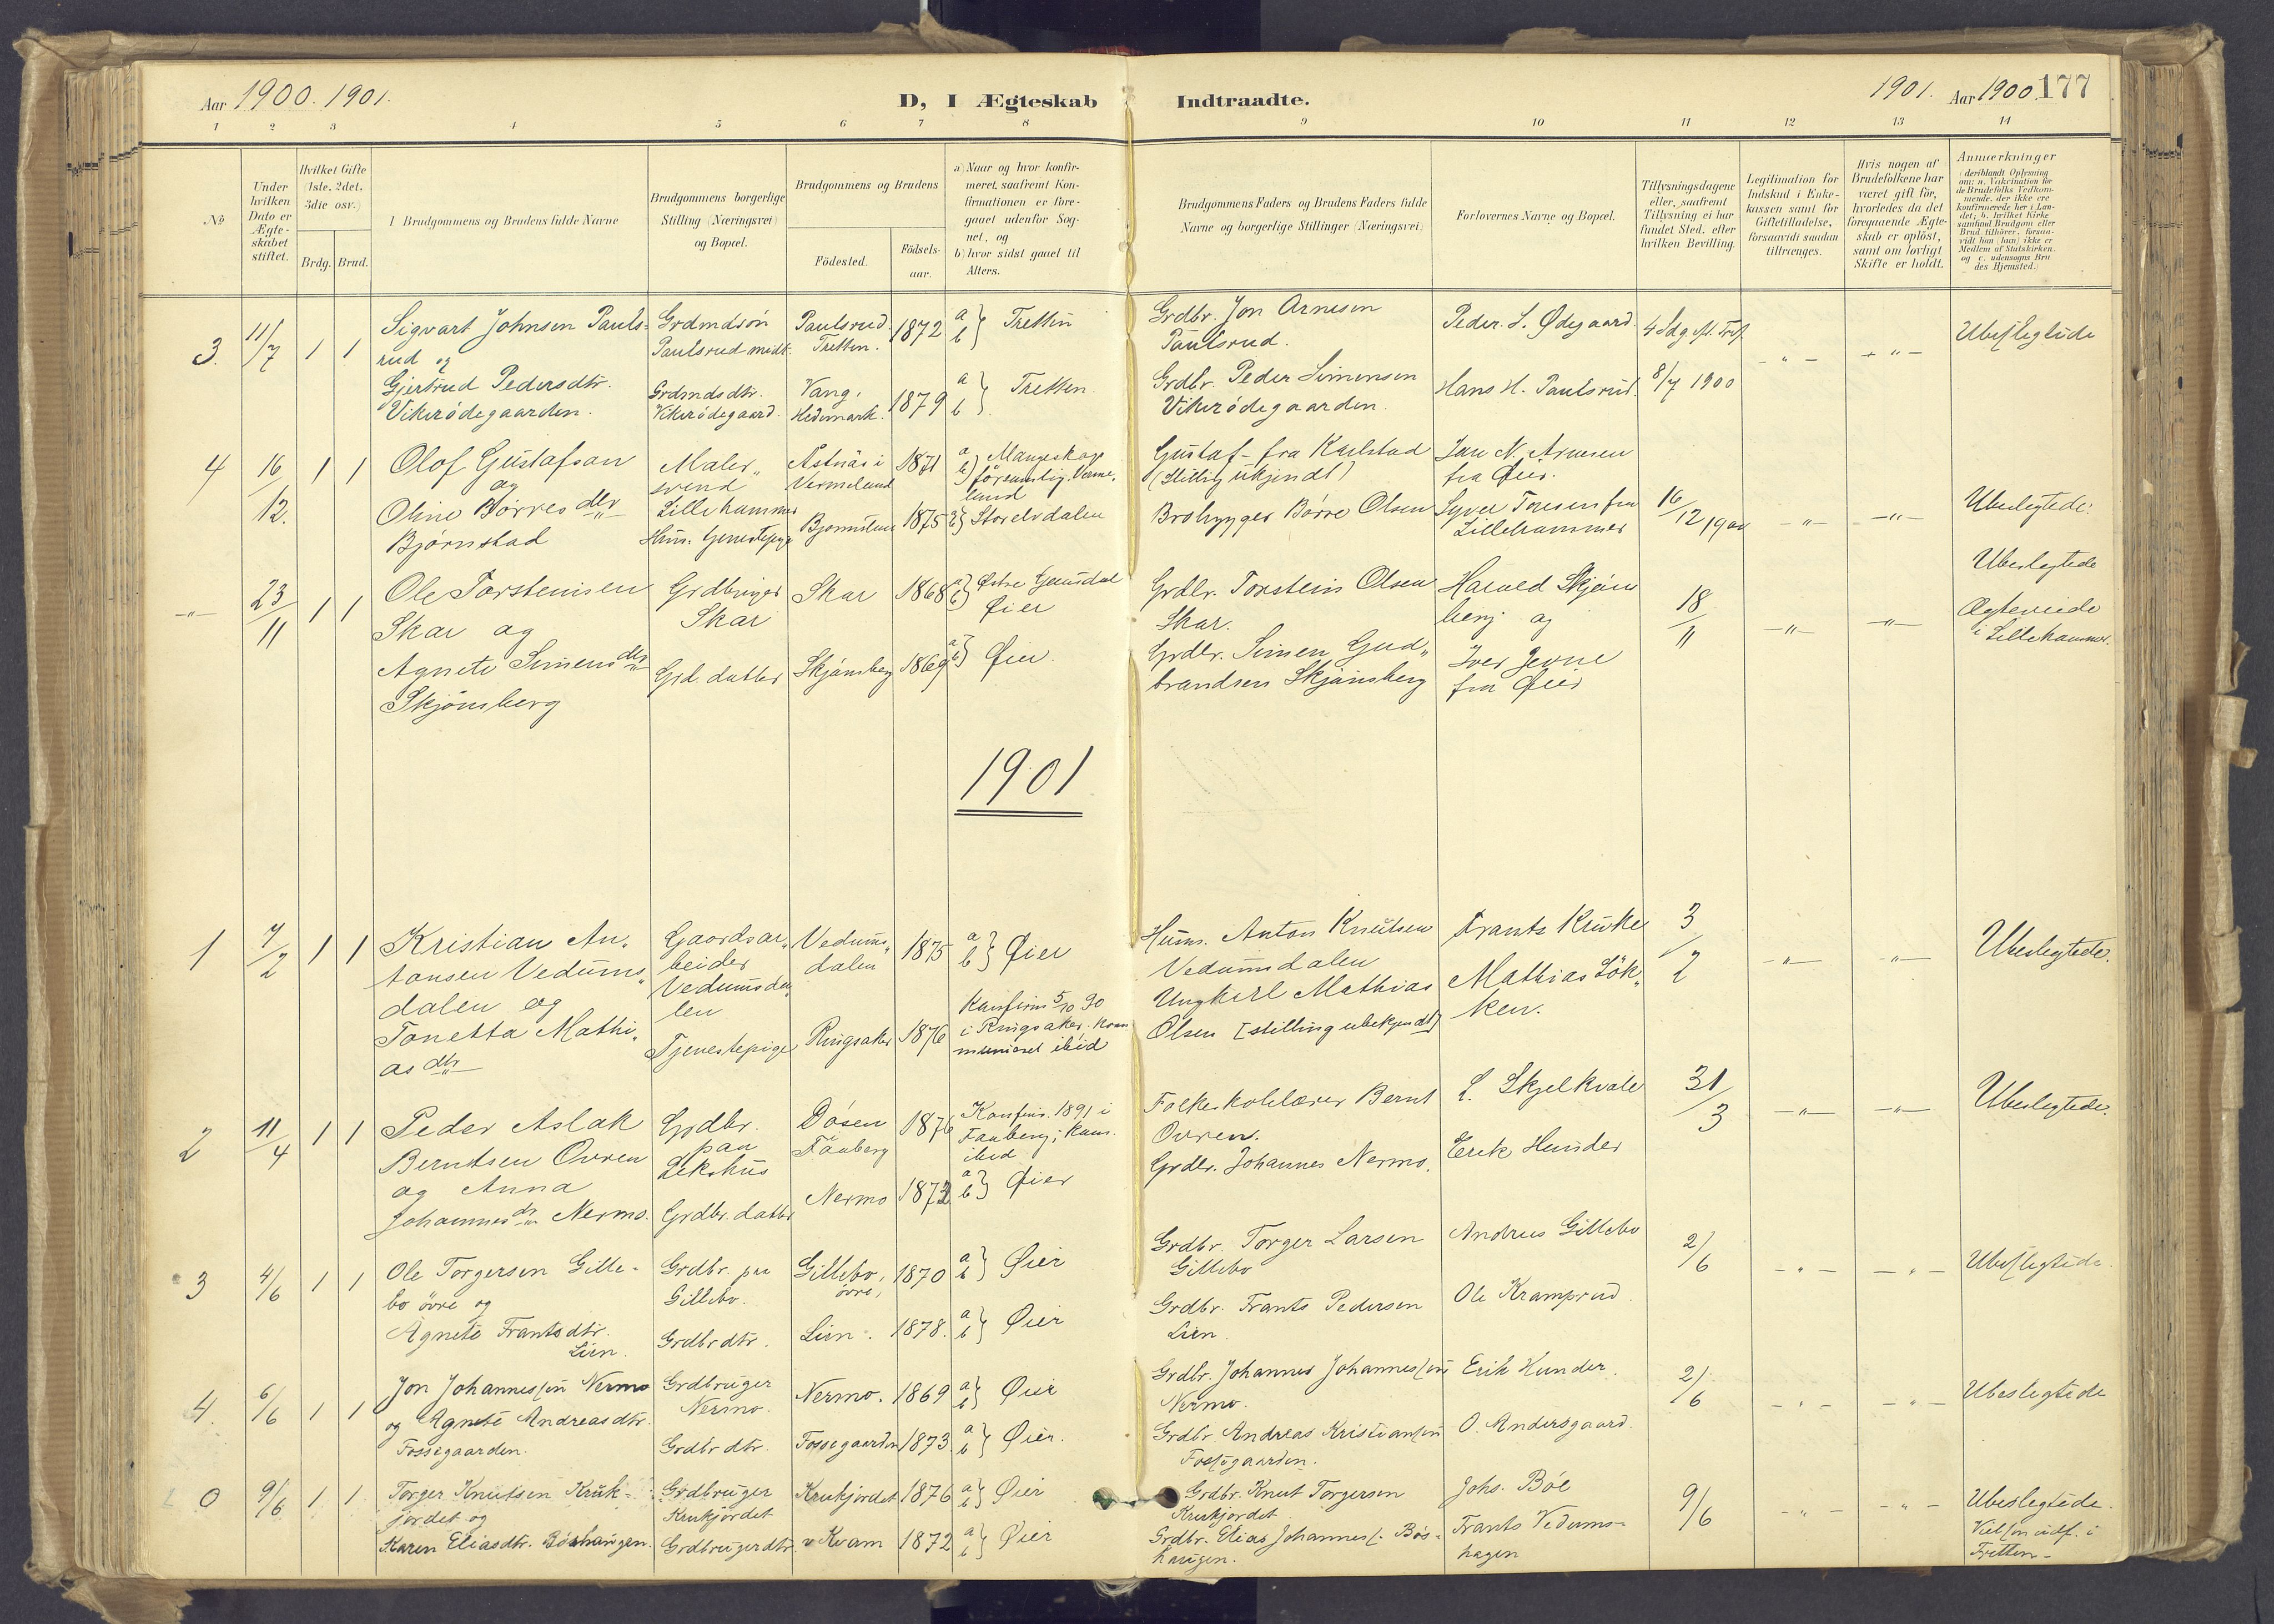 Aar 1900. 1901.
D, I Ægteskab Indtraadte.
1901. Aar 1900. 177
1 2 3 4 5 6 7 8 9 10 11 12 13 14
№
Under hvilken Dato er Ægte-skabet stiftet.
Hvilket Gifte (1ste, 2det, 3die osv.)
Brdg. Brud.
Brudgommens og Brudens fulde Navne
Brudgommens borgerlige Stilling (Næringsvei) og Bopæl.
Brudgommens og Brudens
Födested.
Födsels-aar.
a) Naar og hvor konfir-
meret, saafremt Kon-
firmationen er fore-
gaaet udenfor Sog-
net, og
b) hvor sidst gaaet til
Alters.
Brudgommens Faders og Brudens Faders fulde
Navne og borgerlige Stillinger (Næringsvei)
Forlovernes Navne og Bopæl.
Tillysningsdagene
eller, saafremt
Tillysning ei har
fundet Sted, efter
hvilken Bevilling.
Legitimation for
Indskud i Enke-
kassen samt for
Giftetilladelse,
forsaavidt saadan
tiltrænges.
Hvis nogen af
Brudefolkene har
været gift för,
hvorledes da det
foregaaende Ægte-
skab er oplöst,
samt om lovligt
Skifte er holdt.
Anmærkninger
(deriblandt Oplysning
om: a. Vakcination for
de Brudefolks Vedkom-
mende, der ikke ere
konfirmerede her i Lan-
det; b. hvilket Kirke
samfund Brudgom eller
Brud tilhörer, forsaa-
vidt han (hun) ikke er
Medlem af Statskirken.
og c. udensogns Bru
des Hjemsted.)
3. 11/7 1 1
Sigvart Johnsen Pauls-
rud og
Gjertrud Pedersdtr.
Vikerödegaarden.
Grdmdsön
Paulsrud
Grdmdsdtr.
Vikerödegaard.
Paulsrud
Tretten. 1872
Vang,
Hedemark. 1879
a b } Tretten
a b } Tretten
Grdbr. Jon Arnesen
Paulsrud.
Grdbr. Peder Simensen
Vikerödegaarden.
Peder S. Ødegaard.
Hans H. Paulsrud.
8/7 1900
- " - - " -
Ubeslegtede
4 16/12. 1 1
Olof Gustafson
og
Oline Börres dtr
Bjørnstad
Maler„
svend
Lillehammer
Vermeland 1871
1875
a b }
Storelvdalen
Gustaf - fra Karlstad
(Stillig ukjendt)
Brobygger Börre Olsen
Jan N. Arnesen
fra Øier.
Lillehammer
16/12 1900
-"- -"-
Ubeslegtede.
-"- 23/11 1 1
Ole Torsteinsen
Skar og
Agnete Simens dtr
Skjönsberg
Grdbruger
Skar
Grd. datter
Skar 1868
Skjönsberg 1869
a b } Østre Gausdal
Øier
a b } Øier.
Grdbr. Torstein Olsen
Skar.
Grdbr. Simen Gud„
brandsen Skjönsberg
Harald Skjöns
berg og
Iver Jevne
fra Øier
18/11
-"- -"-
Ubeslegtede
Ægteviede
i Lillehammer.
1901
1 7/2 1 1
Kristian An„
tonsen Vedums„
dalen og
Tonetta Mathi„
as dtr
Gaardsar„
beider
Vedumsda„
len
Tjenestepige
Vedums„
dalen 1875
Ringsaker 1876
a b } Øier
Konfirm 5/10 90
i Ringsaker. Kom
municeret ibid
Husm. Anton Knutsen
Vedumsdalen
Ungkarl Mathias
Olsen [stilling ubekjendt]
Frants Kruke
Mathias Lök„
ken.
3/2
-"- -"-
Ubeslegtede.
2 11/4 1 1
Peder Aslak
Berntsen Ovren
og Anna
Johannes dtr Nermo.
Grdbr.
paa
Lekshus
Grdbr. datter
Dösen
Faaberg 1876
Nermo
Konfirm. 1891 i
Faaberg; Kom.
ibid
a b } Øier
Folkeskolelærer Bernt
Ovren.
Grdbr. Johannes Nermo.
L. Skjelkvale
Erik Hunder
31/3
-"- -"-
Ubeslegtede.
3 4/6 1 1
Ole Torgersen Gille-
bo övre og
Agnete Frantsdtr.
Lien.
Grdbr. paa
Gillebo.
Grdbrdtr.
Gillebo,
övre, 1870
Lien. 1878.
a b } Øier
a b } Øier
Grdbr. Torger Larsen
Gillebo
Grdbr. Frants Pedersen
Lien.
Andreas Gillebo
Ole Kramprud.
2/6
- " - - " -
Ubeslegtede.
4. 6/6 1 1
Jon Johannessen Nermo
og Agnete Andreasdtr.
Fossegaarden.
Grdbruger
Nermo.
Grdbrdtr.
Nermo. 1869
Fossegaarden 1873
a b } Øier
a b } Øier.
Grdbr. Johannes Johannessen
Nermo.
Grdbr. Andreas Kristiansen
Fossegaarden.
Erik Hunder.
O. Andersgaard.
2/6
- " - - " -
Ubeslegtede
0 9/6 1 1
Torger Knutsen Kruk-
jordet og
Karen Eliasdtr. Böshaugen.
Grdbruger
Krukjordet
Grdbrugerdtr.
Krukjordet 1876
v Kvam 1872
a b } Øier
a b } Øier
Grdbr. Knut Torgersen
Krukjordet
Grdbr. Elias Johanness. Bös-
haugen.
Johs. Böe
Frants Vedums-
hagen
9/6
- " - - " -
Ubeslegtede.
Vielsen udf. i
Tretten-